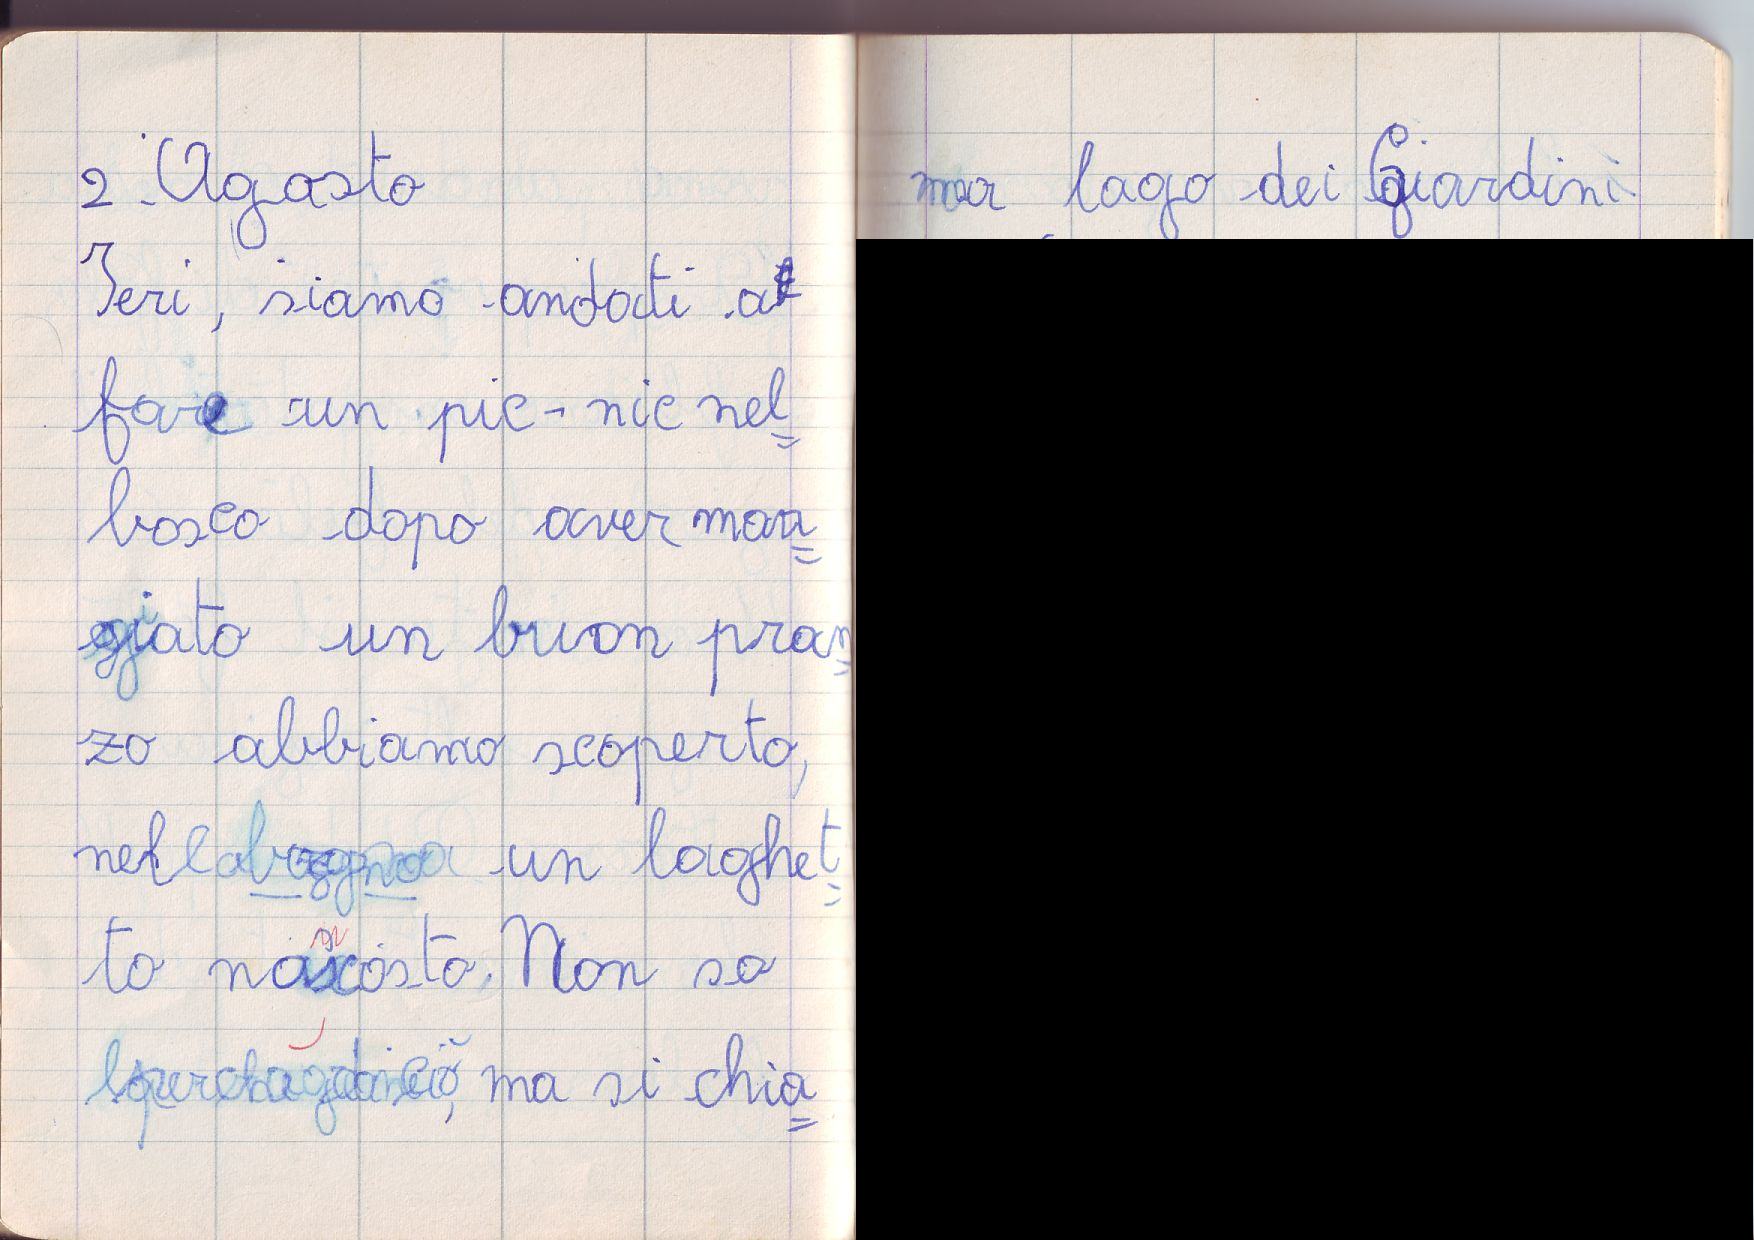 2 Agosto
Ieri, siamo andati a
fare un pic-nic nel
bosco dopo aver man
giato un buon pran
zo abbiamo scoperto,
un laghet
to nascosto. Non so
ma si chia
ma lago dei Giardini